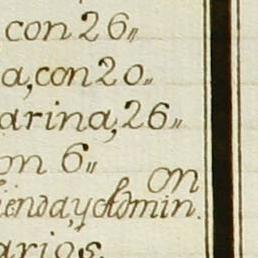 con 26,,
a, con 20,,
arina, 26,,
on 6,,
on
ienda, y Admin.
arios.